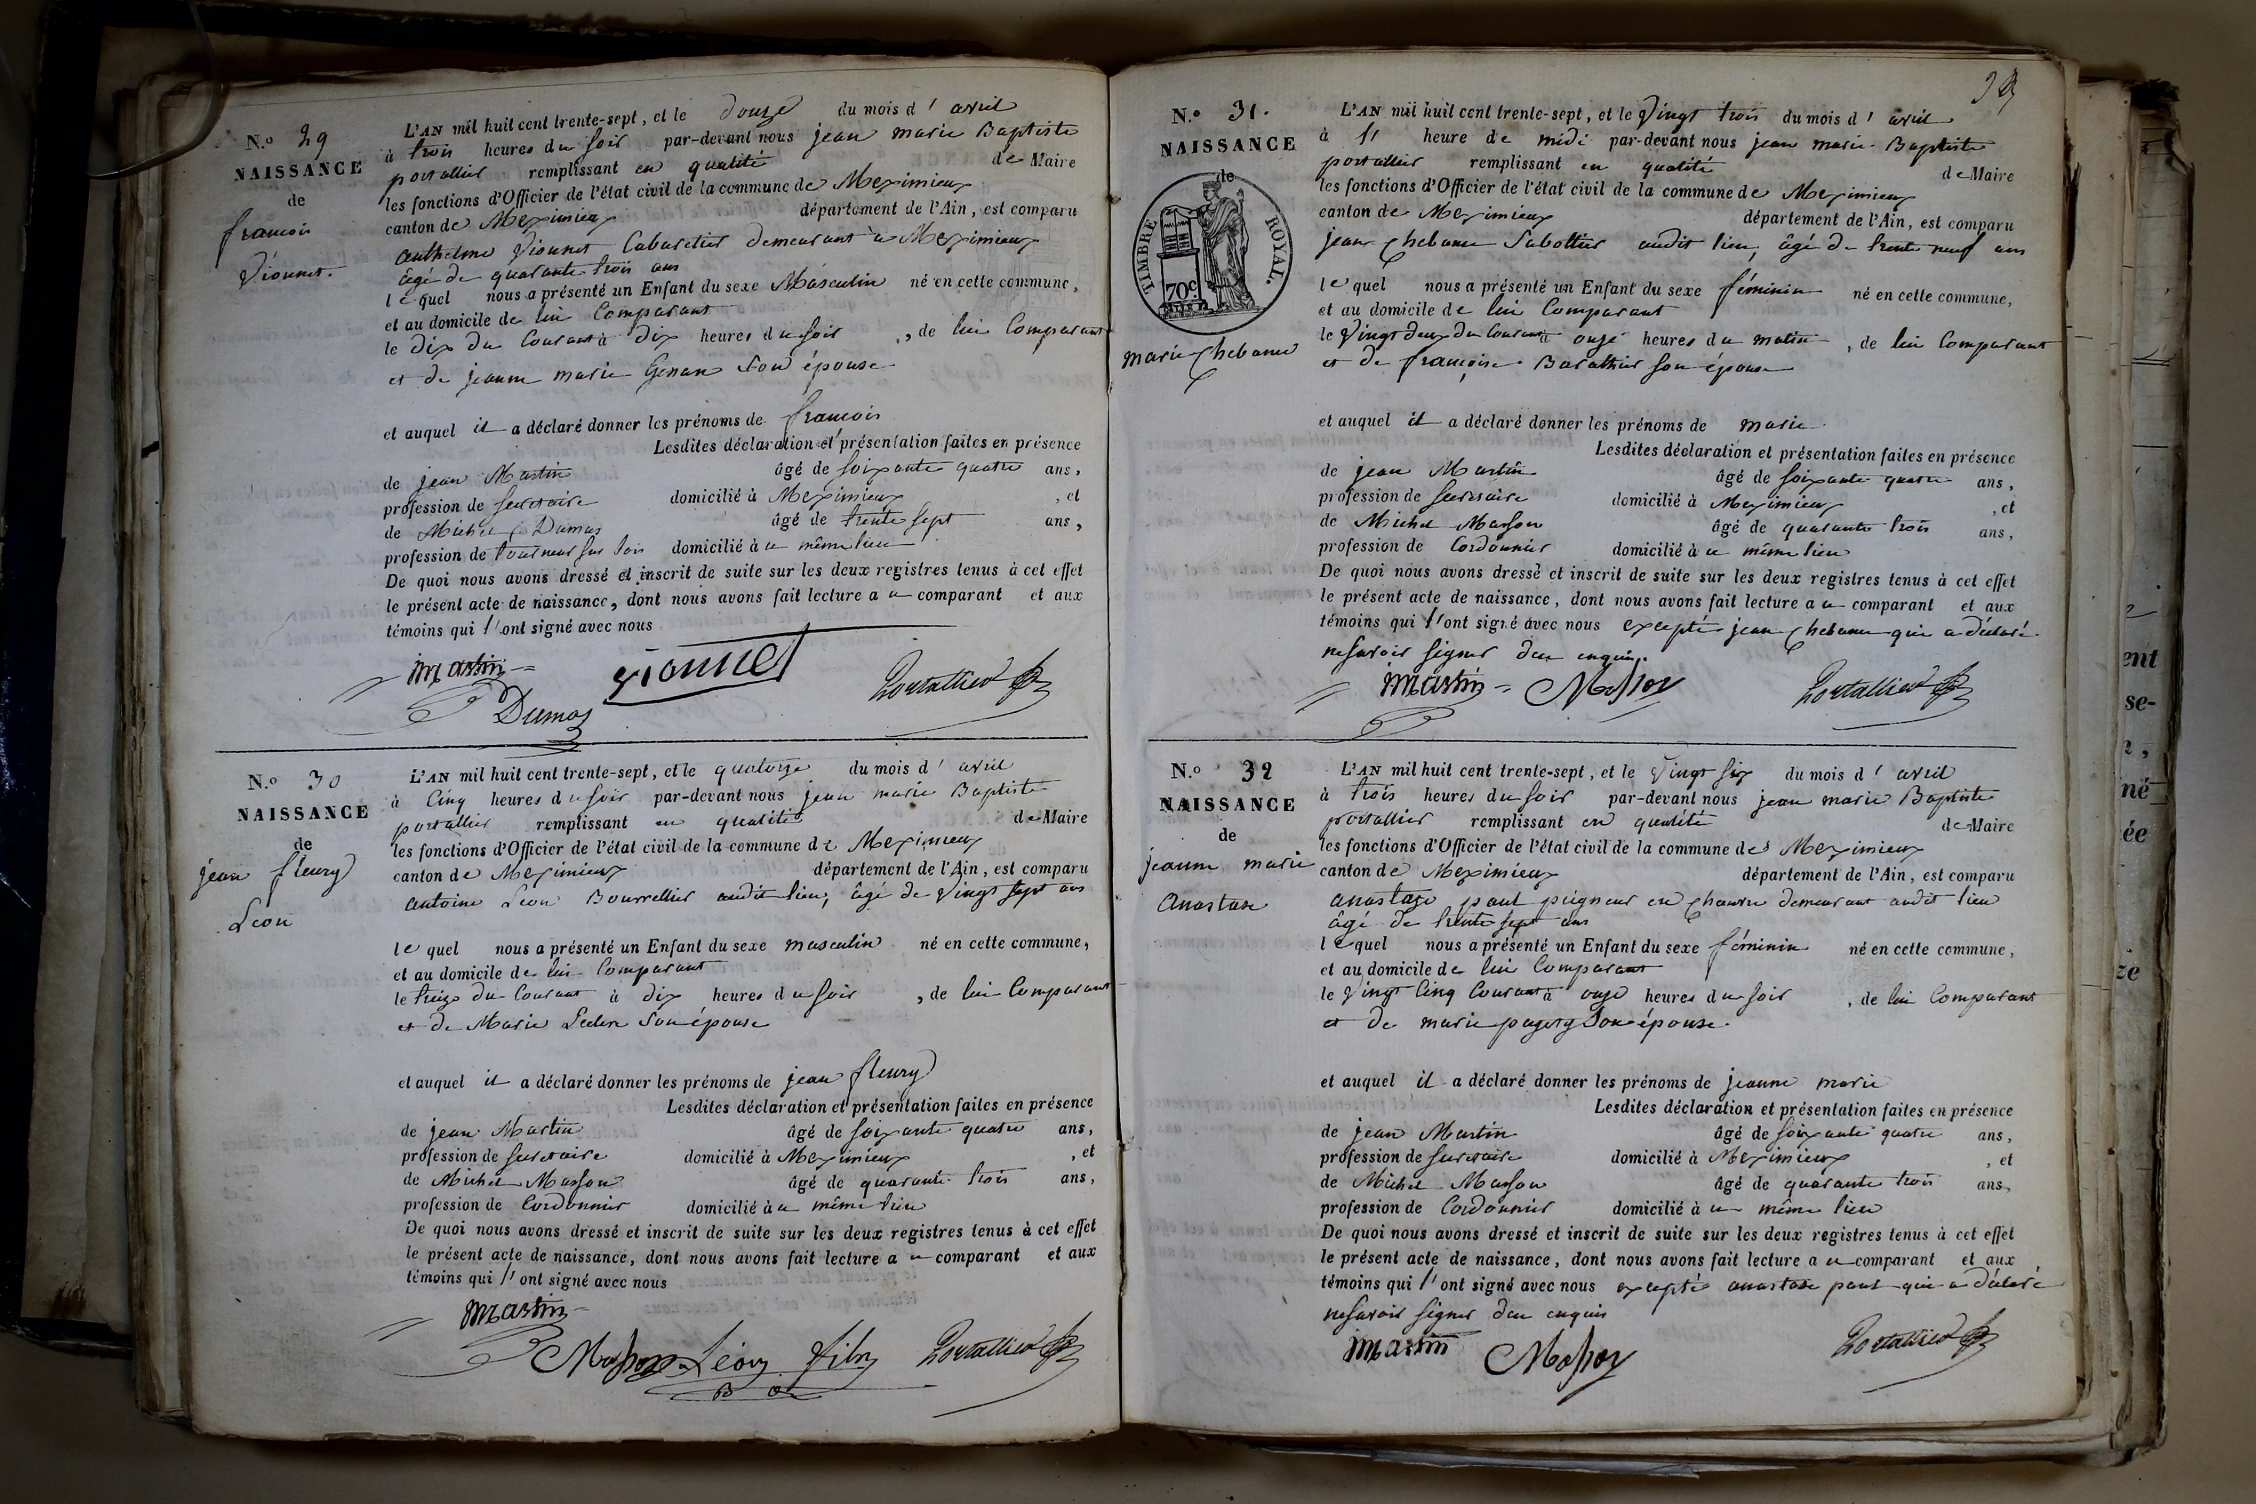 N.º 29
NAISSANCE
de
françois
Viounet.
L'AN mil huit cent trente-sept, et le douze du mois d' avril
à trois heures du soir par-devant nous jean marie Baptiste
portallier remplissant en qualité de Maire
les fonctions d'Officier de l'état civil de la commune de Meximieux
canton de Meximieux département de l'Ain, est comparu
anthelme Viounet Cabaretier demeurant à Meximieux
âgé de quarante trois ans
le quel nous a présenté un Enfant du sexe Masculin né en cette commune,
et au domicile de lui Comparant
le dix du Courant à dix heures du soir, de lui Comparant
et de jeanne marie Genan son épouse
et auquel il a déclaré donner les prénoms de françois
Lesdites déclaration et présentation faites en présence
de jean Martin âgé de soixante quatre ans,
profession de secretaire domicilié à Meximieux, et
de Michel Dumas âgé de trente sept ans,
profession de tourneur sur bois domicilié à ce même lieu
De quoi nous avons dressé et inscrit de suite sur les deux registres tenus à cet effet
le présent acte de naissance, dont nous avons fait lecture a ce comparant et aux
témoins qui l'ont signé avec nous
Martin viounet Portallier
Dumas
N.º 30
NAISSANCE
de
jean fleury
Leon
L'AN mil huit cent trente-sept, et le quatorze du mois d' avril
à Cinq heures du soir par-devant nous jean marie Baptiste
portallier remplissant en qualité de Maire
les fonctions d'Officier de l'état civil de la commune de Meximieux
canton de Meximieux département de l'Ain, est comparu
antoine Leon Bourrellier audit lieu, âgé de Vingt sept ans
le quel nous a présenté un Enfant du sexe masculin né en cette commune,
et au domicile de lui Comparant
le treize du Courant à dix heures du soir, de lui Comparant
et de Marie son épouse
et auquel il a déclaré donner les prénoms de jean fleury
Lesdites déclaration et présentation faites en présence
de jean Martin âgé de soixante quatre ans,
profession de secretaire domicilié à Meximieux, et
de Michel Masson âgé de quarante trois ans,
profession de Cordonnier domicilié à ce même lieu
De quoi nous avons dressé et inscrit de suite sur les deux registres tenus à cet effet
le présent acte de naissance, dont nous avons fait lecture a ce comparant et aux
témoins qui l'ont signé avec nous
Martin
Masson Léon fils Portallier
N.º 31.
NAISSANCE
de
TIMBRE ROYAL.
70c
marie Chebance
L'AN mil huit cent trente-sept, et le Vingt trois du mois d' avril
à 1' heure de midi par-devant nous jean marie Baptiste
portallier remplissant en qualité de Maire
les fonctions d'Officier de l'état civil de la commune de Meximieux
canton de Meximieux département de l'Ain, est comparu
jean Chebance Sabottier audit lieu, âgé de trente neuf ans
le quel nous a présenté un Enfant du sexe féminin né en cette commune,
et au domicile de lui Comparant
le Vingt deux du Courant à onze heures du matin, de lui Comparant
et de françoise Barathier son épouse
et auquel il a déclaré donner les prénoms de marie
Lesdites déclaration et présentation faites en présence
de jean Martin âgé de soixante quatre ans,
profession de secretaire domicilié à Meximieux, et
de Michel Masson âgé de quarante trois ans,
profession de Cordonnier domicilié à ce même lieu
De quoi nous avons dressé et inscrit de suite sur les deux registres tenus à cet effet
le présent acte de naissance, dont nous avons fait lecture a ce comparant et aux
témoins qui l'ont signé avec nous excepté jean Chebance qui a déclaré
ne savoir signer de ce enquis.
Martin Masson Portallier
N.º 32
NAISSANCE
de
jeanne marie
Anastase
L'AN mil huit cent trente-sept, et le Vingt six du mois d' avril
à trois heures du soir par-devant nous jean marie Baptiste
portallier remplissant en qualité de Maire
les fonctions d'Officier de l'état civil de la commune de Meximieux
canton de Meximieux département de l'Ain, est comparu
anastaze paul peigneur en Chanvre demeurant audit lieu
âgé de trente sept ans
le quel nous a présenté un Enfant du sexe féminin né en cette commune,
et au domicile de lui Comparant
le Vingt Cinq Courant à onze heures du soir, de lui Comparant
et de marie son épouse.
et auquel il a déclaré donner les prénoms de jeanne marie
Lesdites déclaration et présentation faites en présence
de jean Martin âgé de soixante quatre ans,
profession de secretaire domicilié à Meximieux, et
de Michel Masson âgé de quarante trois ans,
profession de Cordonnier domicilié à ce même lieu
De quoi nous avons dressé et inscrit de suite sur les deux registres tenus à cet effet
le présent acte de naissance, dont nous avons fait lecture a ce comparant et aux
témoins qui l'ont signé avec nous excepté anastase paul qui a déclaré
ne savoir signer de ce enquis
Martin Masson Portallier
ent
se-
né
ée
ze